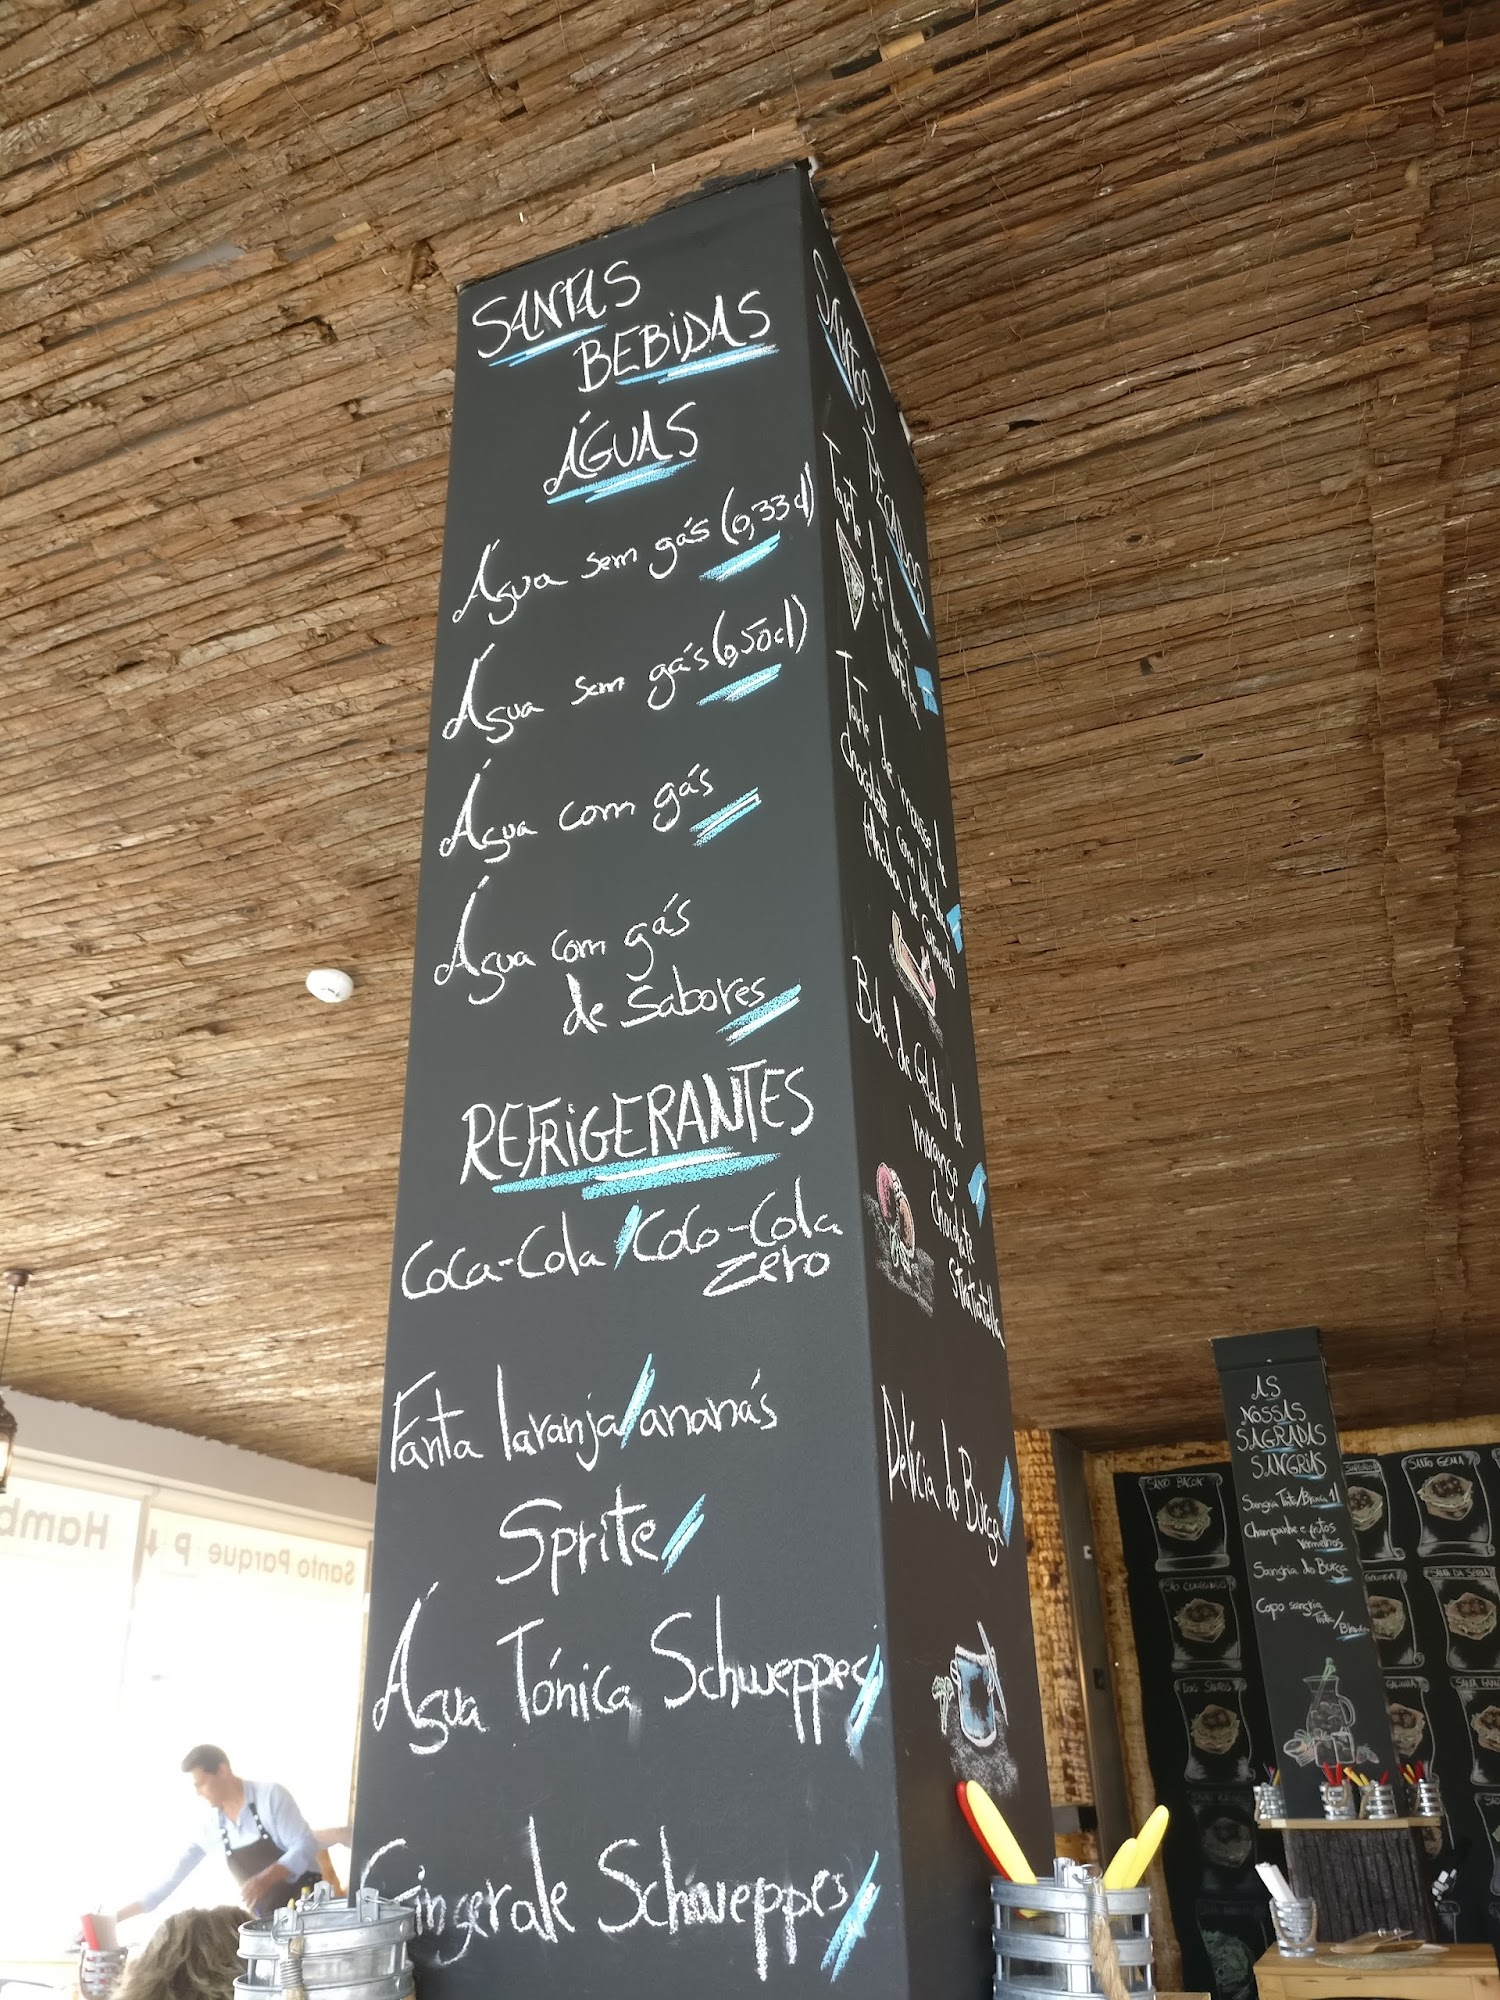 SANTAS
BEBIDAS
ÁGUAS
Água sem gás (0,33cl)
Água sem gás (0,50cl)
Água com gás
Água com gás
de Sabores
REFRIGERANTES
Coca-Cola/Coca-Cola
zero
Fanta laranja/ananás
Sprite
Água Tónica Schweppes
Gingerale Schweppes
SANTOS
PECADOS
Tarte
de lima
Tarte de mousse de
chocolate com
de
Bola de Gelado de
morango
chocolate
Stratiatella
Delícia do Burgo
AS
NOSSAS
SAGRADAS
SANGRIAS
Sangria Tinta/Branca 1l
Champanhe e frutos
vermelhos
Sangria do Burgo
Copo sangria
Tinta/
Branca
SANTO BACON
SANTO GEMA
Hamb
P
Santo Parque